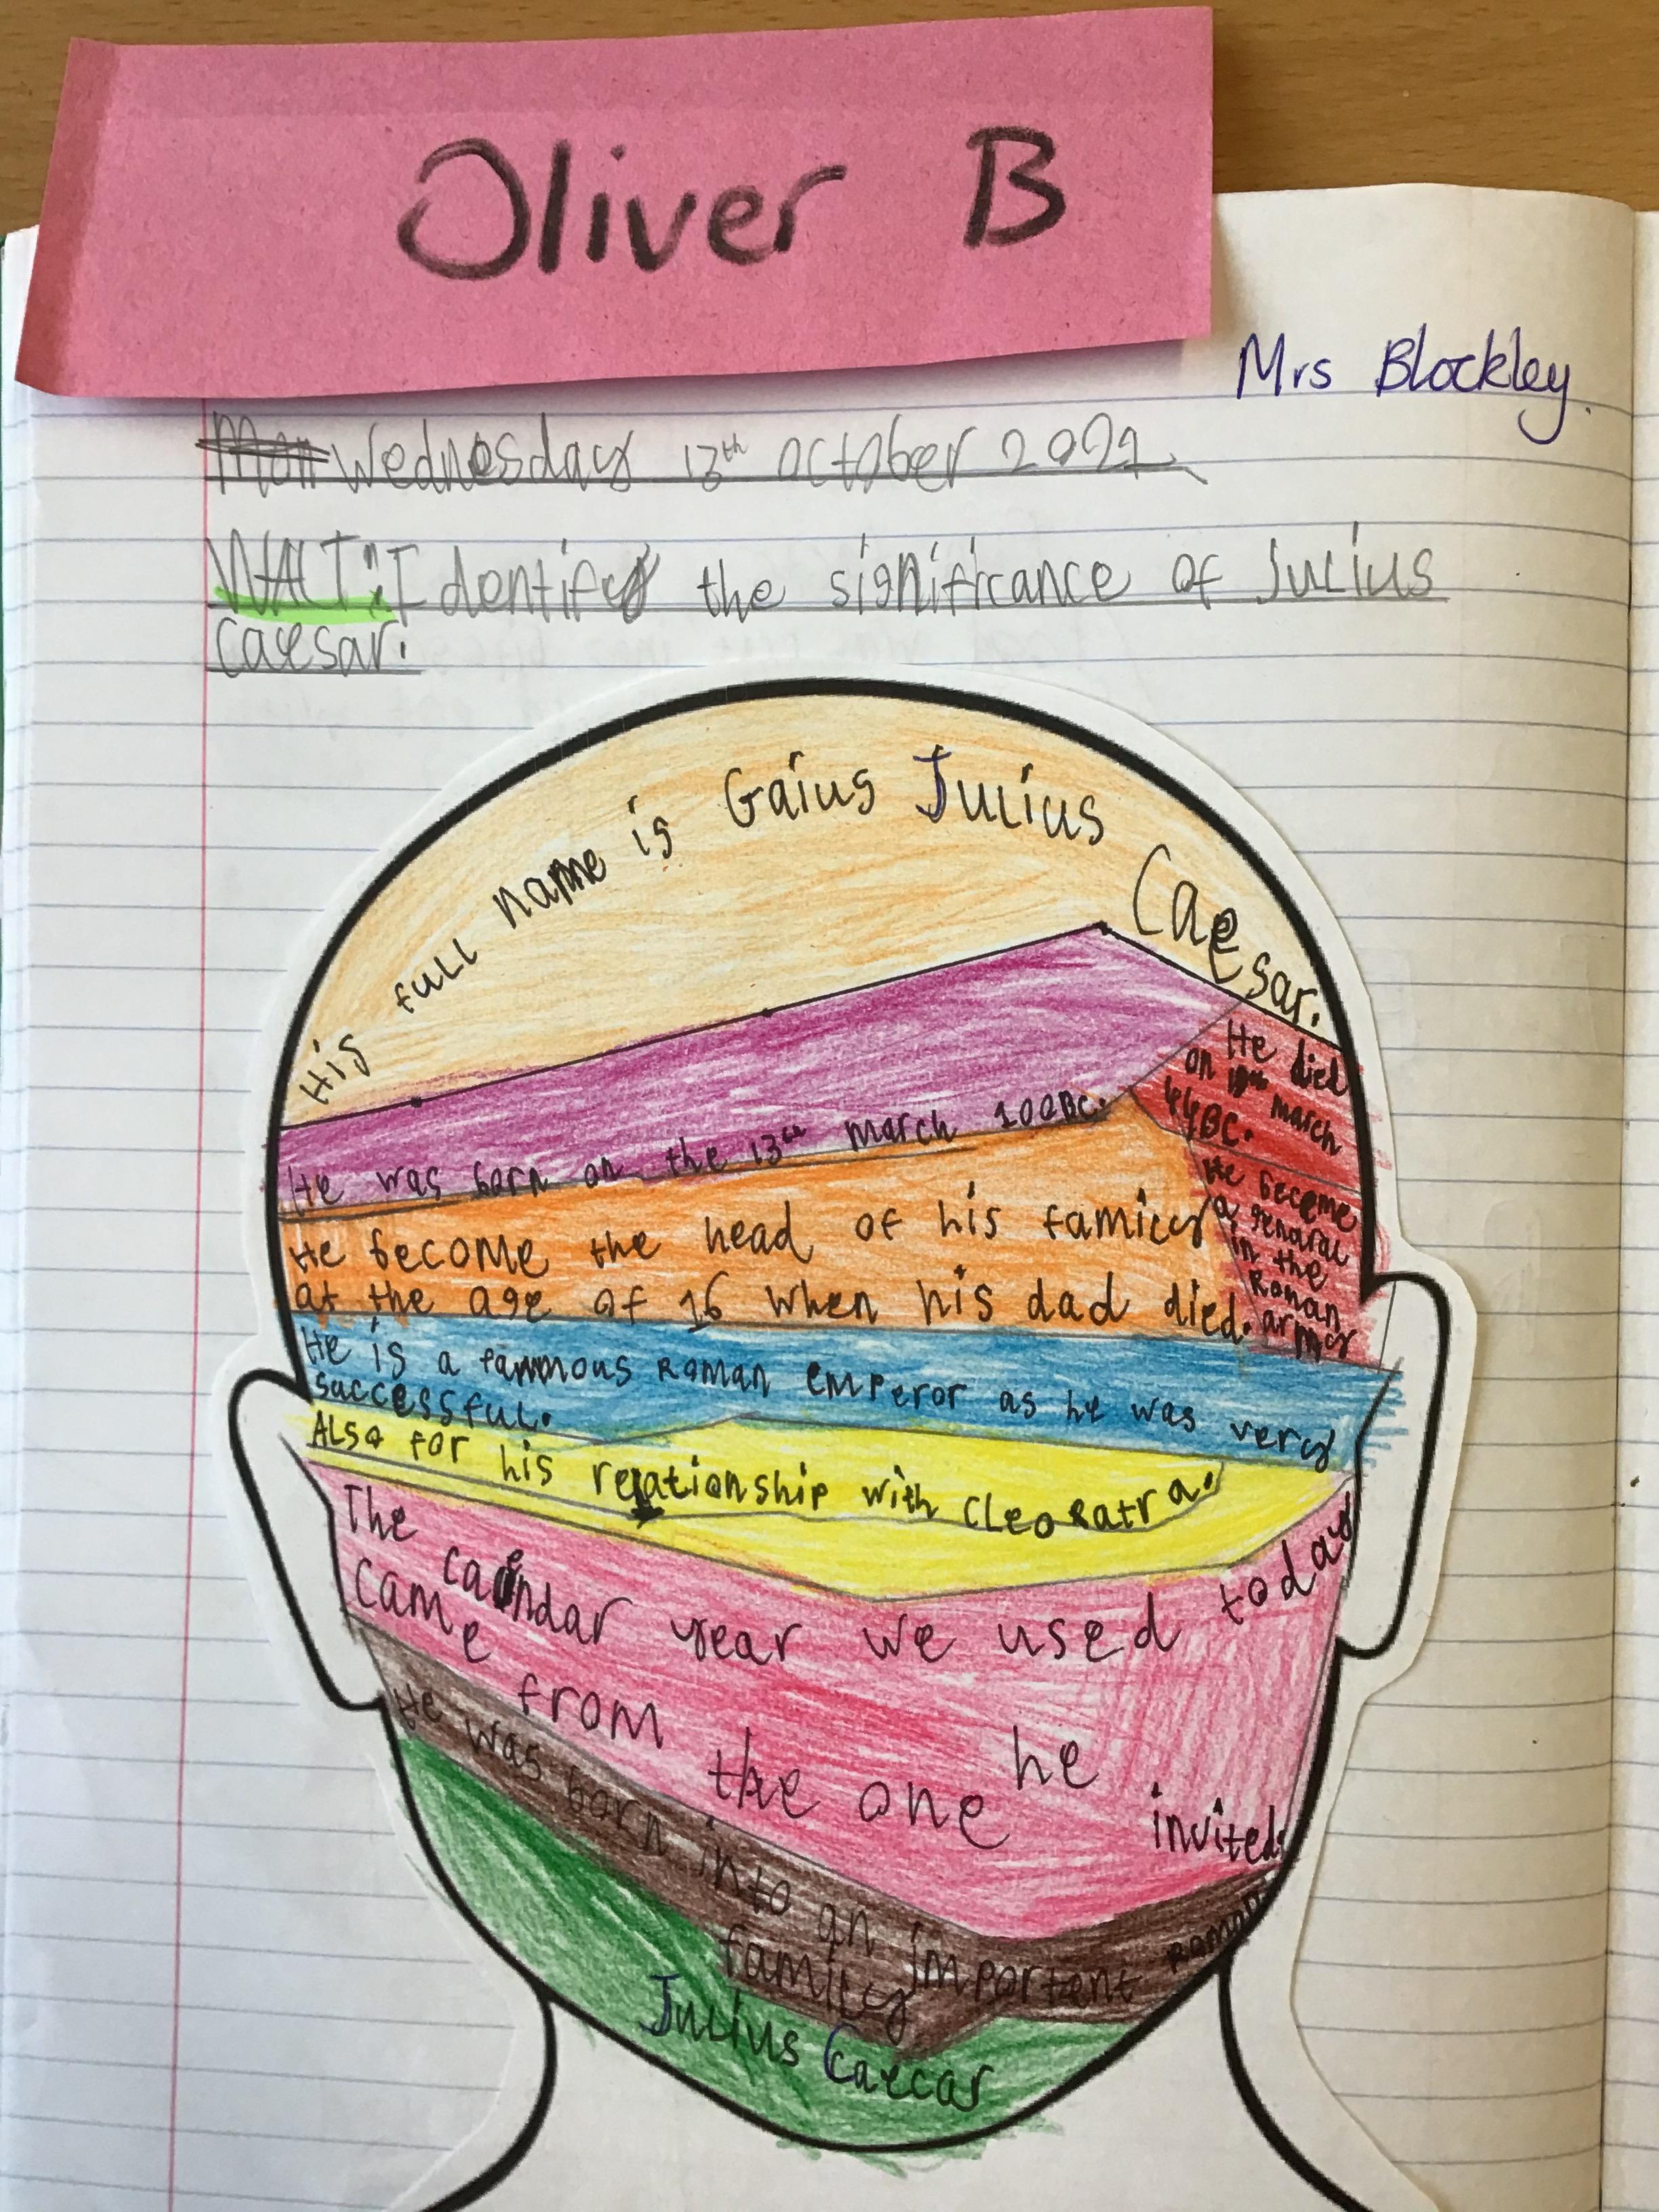 Oliver B
Mrs Blockley.
Wednesday 13th October 2021
WALT: Identify the significance of Julius
Caesar.
His full name is Gaius Julius Caesar.
He was born on the 13th march 100BC.
He died
on march
44BC.
He become the head of his family
at the age of 16 when his dad died.
He become
a genaral
in the
Roman
army
He is a fammous Roman emperor as he was very
successful.
Also for his relationship with Cleopatra.
The calendar year we used today
came from the one he invited.
He was born into an important Roman
family
Julius Caecar